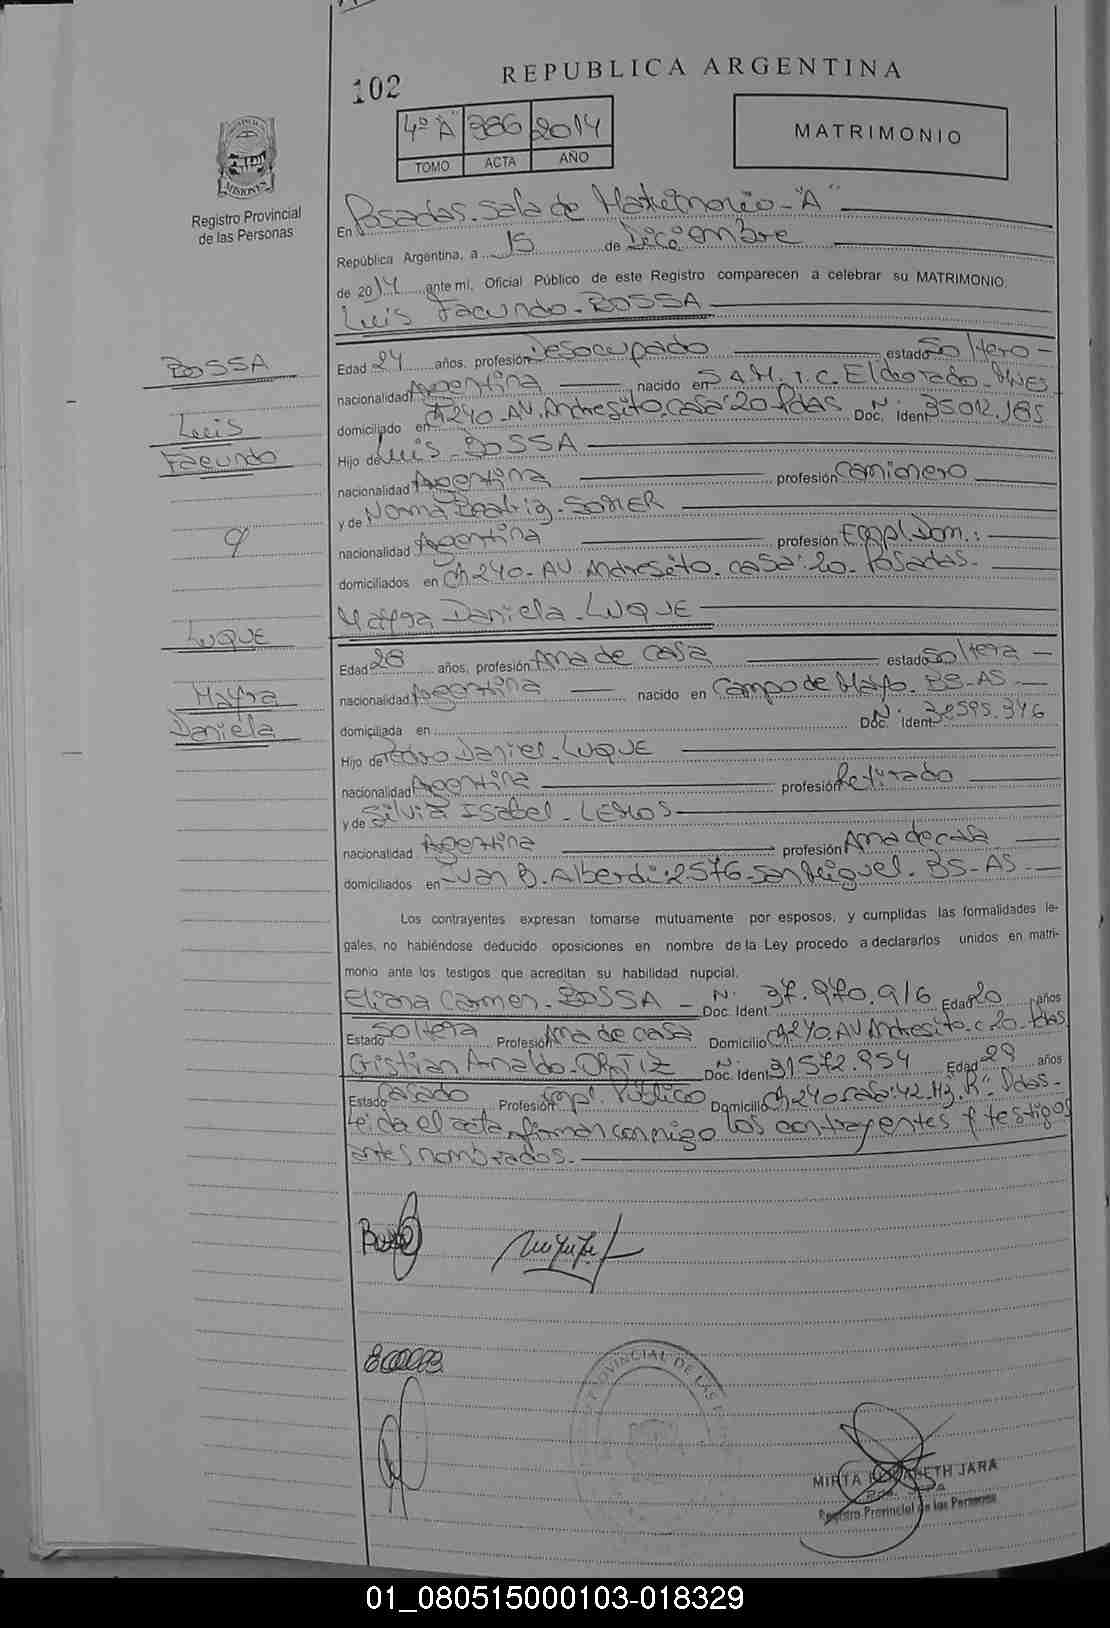 102
REPUBLICA ARGENTINA
4º "A" 986 2014
TOMO ACTA AÑO
MATRIMONIO
MISIONES
Registro Provincial
de las Personas
En Posadas. Sala de Matrimonio - "A"
República Argentina, a 15 de Diciembre
de 2014 ante mí, Oficial Público de este Registro comparecen a celebrar su MATRIMONIO.
Luis Facundo - BOSSA
BOSSA
Luis
Facundo
y
LUQUE
Mayra
Daniela
Edad 24 años, profesión Desocupado estado Soltero -
nacionalidad Argentina nacido en S.A.M. I.C. Eldorado - Mnes
domiciliado en Ch 240 - AV. Andresito. casa: 20 Pdas Doc. Ident. Nº: 35.012.185
Hijo de Luis - BOSSA
nacionalidad Argentina profesión Camionero
y de Norma Beatriz -
nacionalidad Argentina profesión Empl. Dom.:
domiciliados en Ch 240 - AV. Andresito. casa: 20. Posadas.
Mayra Daniela - LUQUE
Edad 28 años, profesión Ama de casa estado Soltera -
nacionalidad Argentina nacido en Campo de Mayo. BS-AS -
domiciliada en Doc. Ident. Nº: 32595.346
Hijo de Pedro Daniel - LUQUE
nacionalidad Argentina profesión Retirado
y de Silvia Isabel - LEMOS
nacionalidad Argentina profesión Ama de casa
domiciliados en Juan B. Alberdi: 2576 - San Miguel. BS-AS -
Los contrayentes expresan tomarse mutuamente por esposos, y cumplidas las formalidades le-
gales, no habiéndose deducido oposiciones en nombre de la Ley procedo a declararlos unidos en matri-
monio ante los testigos que acreditan su habilidad nupcial.
Eliana Carmen - BOSSA - Doc. Ident. Nº: 37.970.916 Edad 20 años
Estado Soltera Profesión Ama de casa Domicilio Ch 240. AV Andresito. c 20 - Pdas
Cristian Arnaldo - ORTIZ Doc. Ident. Nº: 31572.954 Edad 29 años
Estado Casado Profesión Empl. Público Domicilio Ch 240 casa: 42. Mz. R" Pdas -
Leída el acta, firman conmigo los contrayentes y testigos
antes nombrados.
PROVINCIAL DE LAS
MIRTA ELIZABETH JARA
Registro Provincial de las Personas
01_080515000103-018329